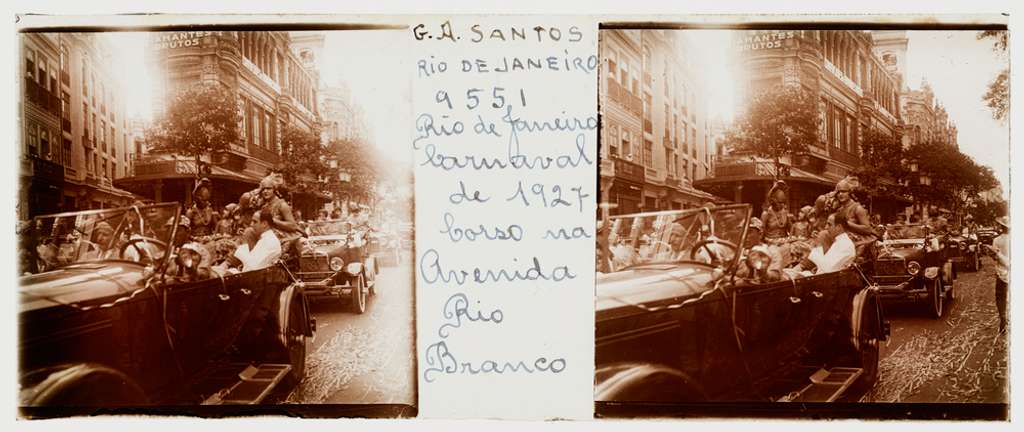 AMANTES
BRUTOS
G. A. SANTOS
RIO DE JANEIRO
9551
Rio de Janeiro
Carnaval
de 1927
Corso na
Avenida
Rio
Branco